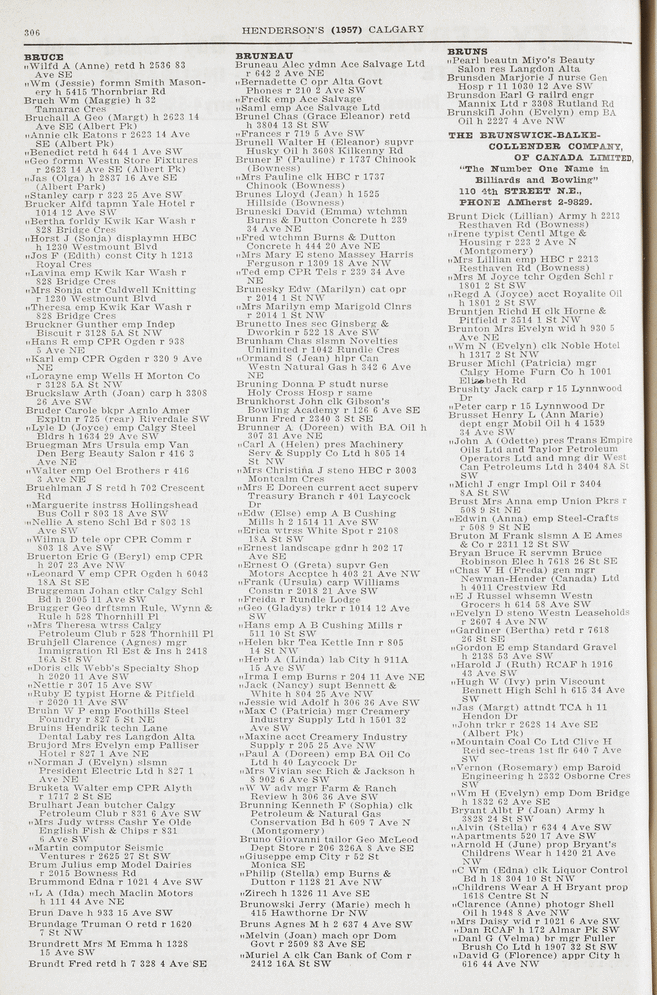 306
HENDERSON'S (1957) CALGARY
BRUCE
„Wilfd A (Anne) retd h 2536 83
Ave SE
„Wm (Jessie) formn Smith Mason-
ery h 5415 Thornbriar Rd
Bruch Wm (Maggie) h 32
Tamarac Cres
Bruchall A Geo (Margt) h 2623 14
Ave SE (Albert Pk)
„Annie clk Eatons r 2623 14 Ave
SE (Albert Pk)
„Benedict retd h 644 1 Ave SW
„Geo formn Westn Store Fixtures
r 2623 14 Ave SE (Albert Pk)
„Jas (Olga) h 2837 16 Ave SE
(Albert Park)
„Stanley carp r 323 25 Ave SW
Brucker Alfd tapmn Yale Hotel r
1014 12 Ave SW
„Bertha forldy Kwik Kar Wash r
828 Bridge Cres
„Horst J (Sonja) displaymn HBC
h 1230 Westmount Blvd
„Jos F (Edith) const City h 1213
Royal Cres
„Lavina emp Kwik Kar Wash r
828 Bridge Cres
„Mrs Sonja ctr Caldwell Knitting
r 1230 Westmount Blvd
„Theresa emp Kwik Kar Wash r
828 Bridge Cres
Bruckner Gunther emp Indep
Biscuit r 3128 5A St NW
„Hans R emp CPR Ogden r 938
5 Ave NE
„Karl emp CPR Ogden r 320 9 Ave
NE
„Lorayne emp Wells H Morton Co
r 3128 5A St NW
Bruckslaw Arth (Joan) carp h 3308
26 Ave SW
Bruder Carole bkpr Agnlo Amer
Expltn r 725 (rear) Riverdale SW
„Lyle D (Joyce) emp Calgy Steel
Bldrs h 1634 29 Ave SW
Bruegman Mrs Ursula emp Van
Den Berg Beauty Salon r 416 3
Ave NE
„Walter emp Oel Brothers r 416
3 Ave NE
Bruehlman J S retd h 702 Crescent
Rd
„Marguerite instrss Hollingshead
Bus Coll r 803 18 Ave SW
„Nellie A steno Schl Bd r 803 18
Ave SW
„Wilma D tele opr CPR Comm r
803 18 Ave SW
Bruerton Eric G (Beryl) emp CPR
h 207 23 Ave NW
„Leonard V emp CPR Ogden h 6043
18A St SE
Bruggeman Johan ctkr Calgy Schl
Bd h 2005 11 Ave SW
Brugger Geo drftsmn Rule, Wynn &
Rule h 528 Thornhill Pl
„Mrs Theresa wtrss Calgy
Petroleum Club r 528 Thornhill Pl
Bruhjell Clarence (Agnes) mgr
Immigration Rl Est & Ins h 2418
16A St SW
„Doris clk Webb's Specialty Shop
h 2020 11 Ave SW
„Nettie r 307 15 Ave SW
„Ruby E typist Horne & Pitfield
r 2020 11 Ave SW
Bruhn W P emp Foothills Steel
Foundry r 827 5 St NE
Bruins Hendrik techn Lane
Dental Laby res Langdon Alta
Brujord Mrs Evelyn emp Palliser
Hotel r 827 1 Ave NE
„Norman J (Evelyn) slsmn
President Electric Ltd h 827 1
Ave NE
Bruketa Walter emp CPR Alyth
r 1717 2 St SE
Brulhart Jean butcher Calgy
Petroleum Club r 831 6 Ave SW
„Mrs Judy wtrss Cashr Ye Olde
English Fish & Chips r 831
6 Ave SW
„Martin computor Seismic
Ventures r 2625 27 St SW
Brum Julius emp Model Dairies
r 2015 Bowness Rd
Brummond Edna r 1021 4 Ave SW
„L A (Ida) mech Maclin Motors
h 111 44 Ave NE
Brun Dave h 933 15 Ave SW
Brundage Truman O retd r 1620
7 St NW
Brundrett Mrs M Emma h 1328
15 Ave SW
Brundt Fred retd h 7 328 4 Ave SE
BRUNEAU
Bruneau Alec ydmn Ace Salvage Ltd
r 642 2 Ave NE
„Bernadette C opr Alta Govt
Phones r 210 2 Ave SW
„Fredk emp Ace Salvage
„Saml emp Ace Salvage Ltd
Brunel Chas (Grace Eleanor) retd
h 3804 13 St SW
„Frances r 719 5 Ave SW
Brunell Walter H (Eleanor) supvr
Husky Oil h 3608 Kilkenny Rd
Bruner F (Pauline) r 1737 Chinook
(Bowness)
„Mrs Pauline clk HBC r 1737
Chinook (Bowness)
Brunes Lloyd (Jean) h 1525
Hillside (Bowness)
Bruneski David (Emma) wtchmn
Burns & Dutton Concrete h 239
34 Ave NE
„Fred wtchmn Burns & Dutton
Concrete h 444 20 Ave NE
„Mrs Mary E steno Massey Harris
Ferguson r 1309 18 Ave NW
„Ted emp CPR Tels r 239 34 Ave
NE
Brunesky Edw (Marilyn) cat opr
r 2014 1 St NW
„Mrs Marilyn emp Marigold Clnrs
r 2014 1 St NW
Brunetto Ines sec Ginsberg &
Dworkin r 522 18 Ave SW
Brunham Chas slsmn Novelties
Unlimited r 1042 Rundle Cres
„Ormand S (Jean) hlpr Can
Westn Natural Gas h 342 6 Ave
NE
Bruning Donna P studt nurse
Holy Cross Hosp r same
Brunkhorst John clk Gibson's
Bowling Academy r 126 6 Ave SE
Brunn Fred r 2340 3 St SE
Brunner A (Doreen) with BA Oil h
307 31 Ave NE
„Carl A (Helen) pres Machinery
Serv & Supply Co Ltd h 805 14
St NW
„Mrs Christina J steno HBC r 3003
Montcalm Cres
„Mrs E Doreen current acct superv
Treasury Branch r 401 Laycock
Dr
„Edw (Else) emp A B Cushing
Mills h 2 1514 11 Ave SW
„Erica wtrss White Spot r 2108
18A St SW
„Ernest landscape gdnr h 202 17
Ave SE
„Ernest O (Greta) supvr Gen
Motors Accptce h 403 21 Ave NW
„Frank (Ursula) carp Williams
Constn r 2018 21 Ave SW
„Freida r Rundle Lodge
„Geo (Gladys) trkr r 1014 12 Ave
SW
„Hans emp A B Cushing Mills r
511 10 St SW
„Helen bkr Tea Kettle Inn r 805
14 St NW
„Herb A (Linda) lab City h 911A
15 Ave SW
„Irma I emp Burns r 204 11 Ave NE
„Jack (Nancy) supt Bennett &
White h 804 25 Ave NW
„Jessie wid Adolf h 306 36 Ave SW
„Max C (Patricia) mgr Creamery
Industry Supply Ltd h 1501 32
Ave SW
„Maxine acct Creamery Industry
Supply r 205 25 Ave NW
„Paul A (Doreen) emp BA Oil Co
Ltd h 40 Laycock Dr
„Mrs Vivian sec Rich & Jackson h
8 902 6 Ave SW
„W W adv mgr Farm & Ranch
Review h 306 36 Ave SW
Brunning Kenneth F (Sophia) clk
Petroleum & Natural Gas
Conservation Bd h 609 7 Ave N
(Montgomery)
Bruno Giovanni tailor Geo McLeod
Dept Store r 206 326A 8 Ave SE
„Giuseppe emp City r 52 St
Monica SE
„Philip (Stella) emp Burns &
Dutton r 1128 21 Ave NW
„Zirech h 1326 11 Ave SE
Brunowski Jerry (Marie) mech h
415 Hawthorne Dr NW
Bruns Agnes M h 2 637 4 Ave SW
„Melvin (Joan) mach opr Dom
Govt r 2509 83 Ave SE
„Muriel A clk Can Bank of Com r
2412 16A St SW
BRUNS
„Pearl beautn Miyo's Beauty
Salon res Langdon Alta
Brunsden Marjorie J nurse Gen
Hosp r 11 1030 12 Ave SW
Brunsdon Earl G rallrd engr
Mannix Ltd r 3308 Rutland Rd
Brunskill John (Evelyn) emp BA
Oil h 2227 4 Ave NW
THE BRUNSWICK-BALKE-
COLLENDER COMPANY,
OF CANADA LIMITED,
"The Number One Name in
Billiards and Bowling"
110 4th STREET N.E.,
PHONE AMherst 2-9829.
Brunt Dick (Lillian) Army h 2213
Resthaven Rd (Bowness)
„Irene typist Centl Mtge &
Housing r 223 2 Ave N
(Montgomery)
„Mrs Lillian emp HBC r 2213
Resthaven Rd (Bowness)
„Mrs M Joyce tchr Ogden Schl r
1801 2 St SW
„Regd A (Joyce) acct Royalite Oil
h 1801 2 St SW
Bruntjen Richd H clk Horne &
Pitfield r 3514 1 St NW
Brunton Mrs Evelyn wid h 930 5
Ave NE
„Wm N (Evelyn) clk Noble Hotel
h 1317 2 St NW
Bruser Michl (Patricia) mgr
Calgy Home Furn Co h 1001
Elizabeth Rd
Brushty Jack carp r 15 Lynnwood
Dr
„Peter carp r 15 Lynnwood Dr
Brusset Henry L (Ann Marie)
dept engr Mobil Oil h 4 1539
34 Ave SW
„John A (Odette) pres Trans Empire
Oils Ltd and Taylor Petroleum
Operators Ltd and mng dir West
Can Petroleums Ltd h 3404 8A St
SW
„Michl J engr Impl Oil r 3404
8A St SW
Brust Mrs Anna emp Union Pkrs r
508 9 St NE
„Edwin (Anna) emp Steel-Crafts
r 508 9 St NE
Bruton M Frank slsmn A E Ames
& Co r 2311 12 St SW
Bryan Bruce R servmn Bruce
Robinson Elec h 7618 26 St SE
„Chas V H (Freda) gen mgr
Newman-Hender (Canada) Ltd
h 4011 Crestview Rd
„E J Russel whsemn Westn
Grocers h 614 58 Ave SW
„Evelyn D steno Westn Leaseholds
r 2607 4 Ave NW
„Gardiner (Bertha) retd r 7618
26 St SE
„Gordon E emp Standard Gravel
h 2138 53 Ave SW
„Harold J (Ruth) RCAF h 1916
43 Ave SW
„Hugh W (Ivy) prin Viscount
Bennett High Schl h 615 34 Ave
SW
„Jas (Margt) attndt TCA h 11
Hendon Dr
„John trkr r 2628 14 Ave SE
(Albert Pk)
„Mountain Coal Co Ltd Clive H
Reid sec-treas 1st flr 640 7 Ave
SW
„Vernon (Rosemary) emp Baroid
Engineering h 2332 Osborne Cres
SW
„Wm H (Evelyn) emp Dom Bridge
h 1832 62 Ave SE
Bryant Albt P (Joan) Army h
3828 24 St SW
„Alvin (Stella) r 634 4 Ave SW
„Apartments 520 17 Ave SW
„Arnold H (June) prop Bryant's
Childrens Wear h 1420 21 Ave
NW
„C Wm (Edna) clk Liquor Control
Bd h 18 304 10 St NW
„Childrens Wear A H Bryant prop
1618 Centre St N
„Clarence (Anne) photogr Shell
Oil h 1948 8 Ave NW
„Mrs Daisy wid r 1021 6 Ave SW
„Dan RCAF h 172 Almar Pk SW
„Danl G (Velma) br mgr Fuller
Brush Co Ltd h 1907 32 St SW
„David G (Florence) appr City h
616 44 Ave NW